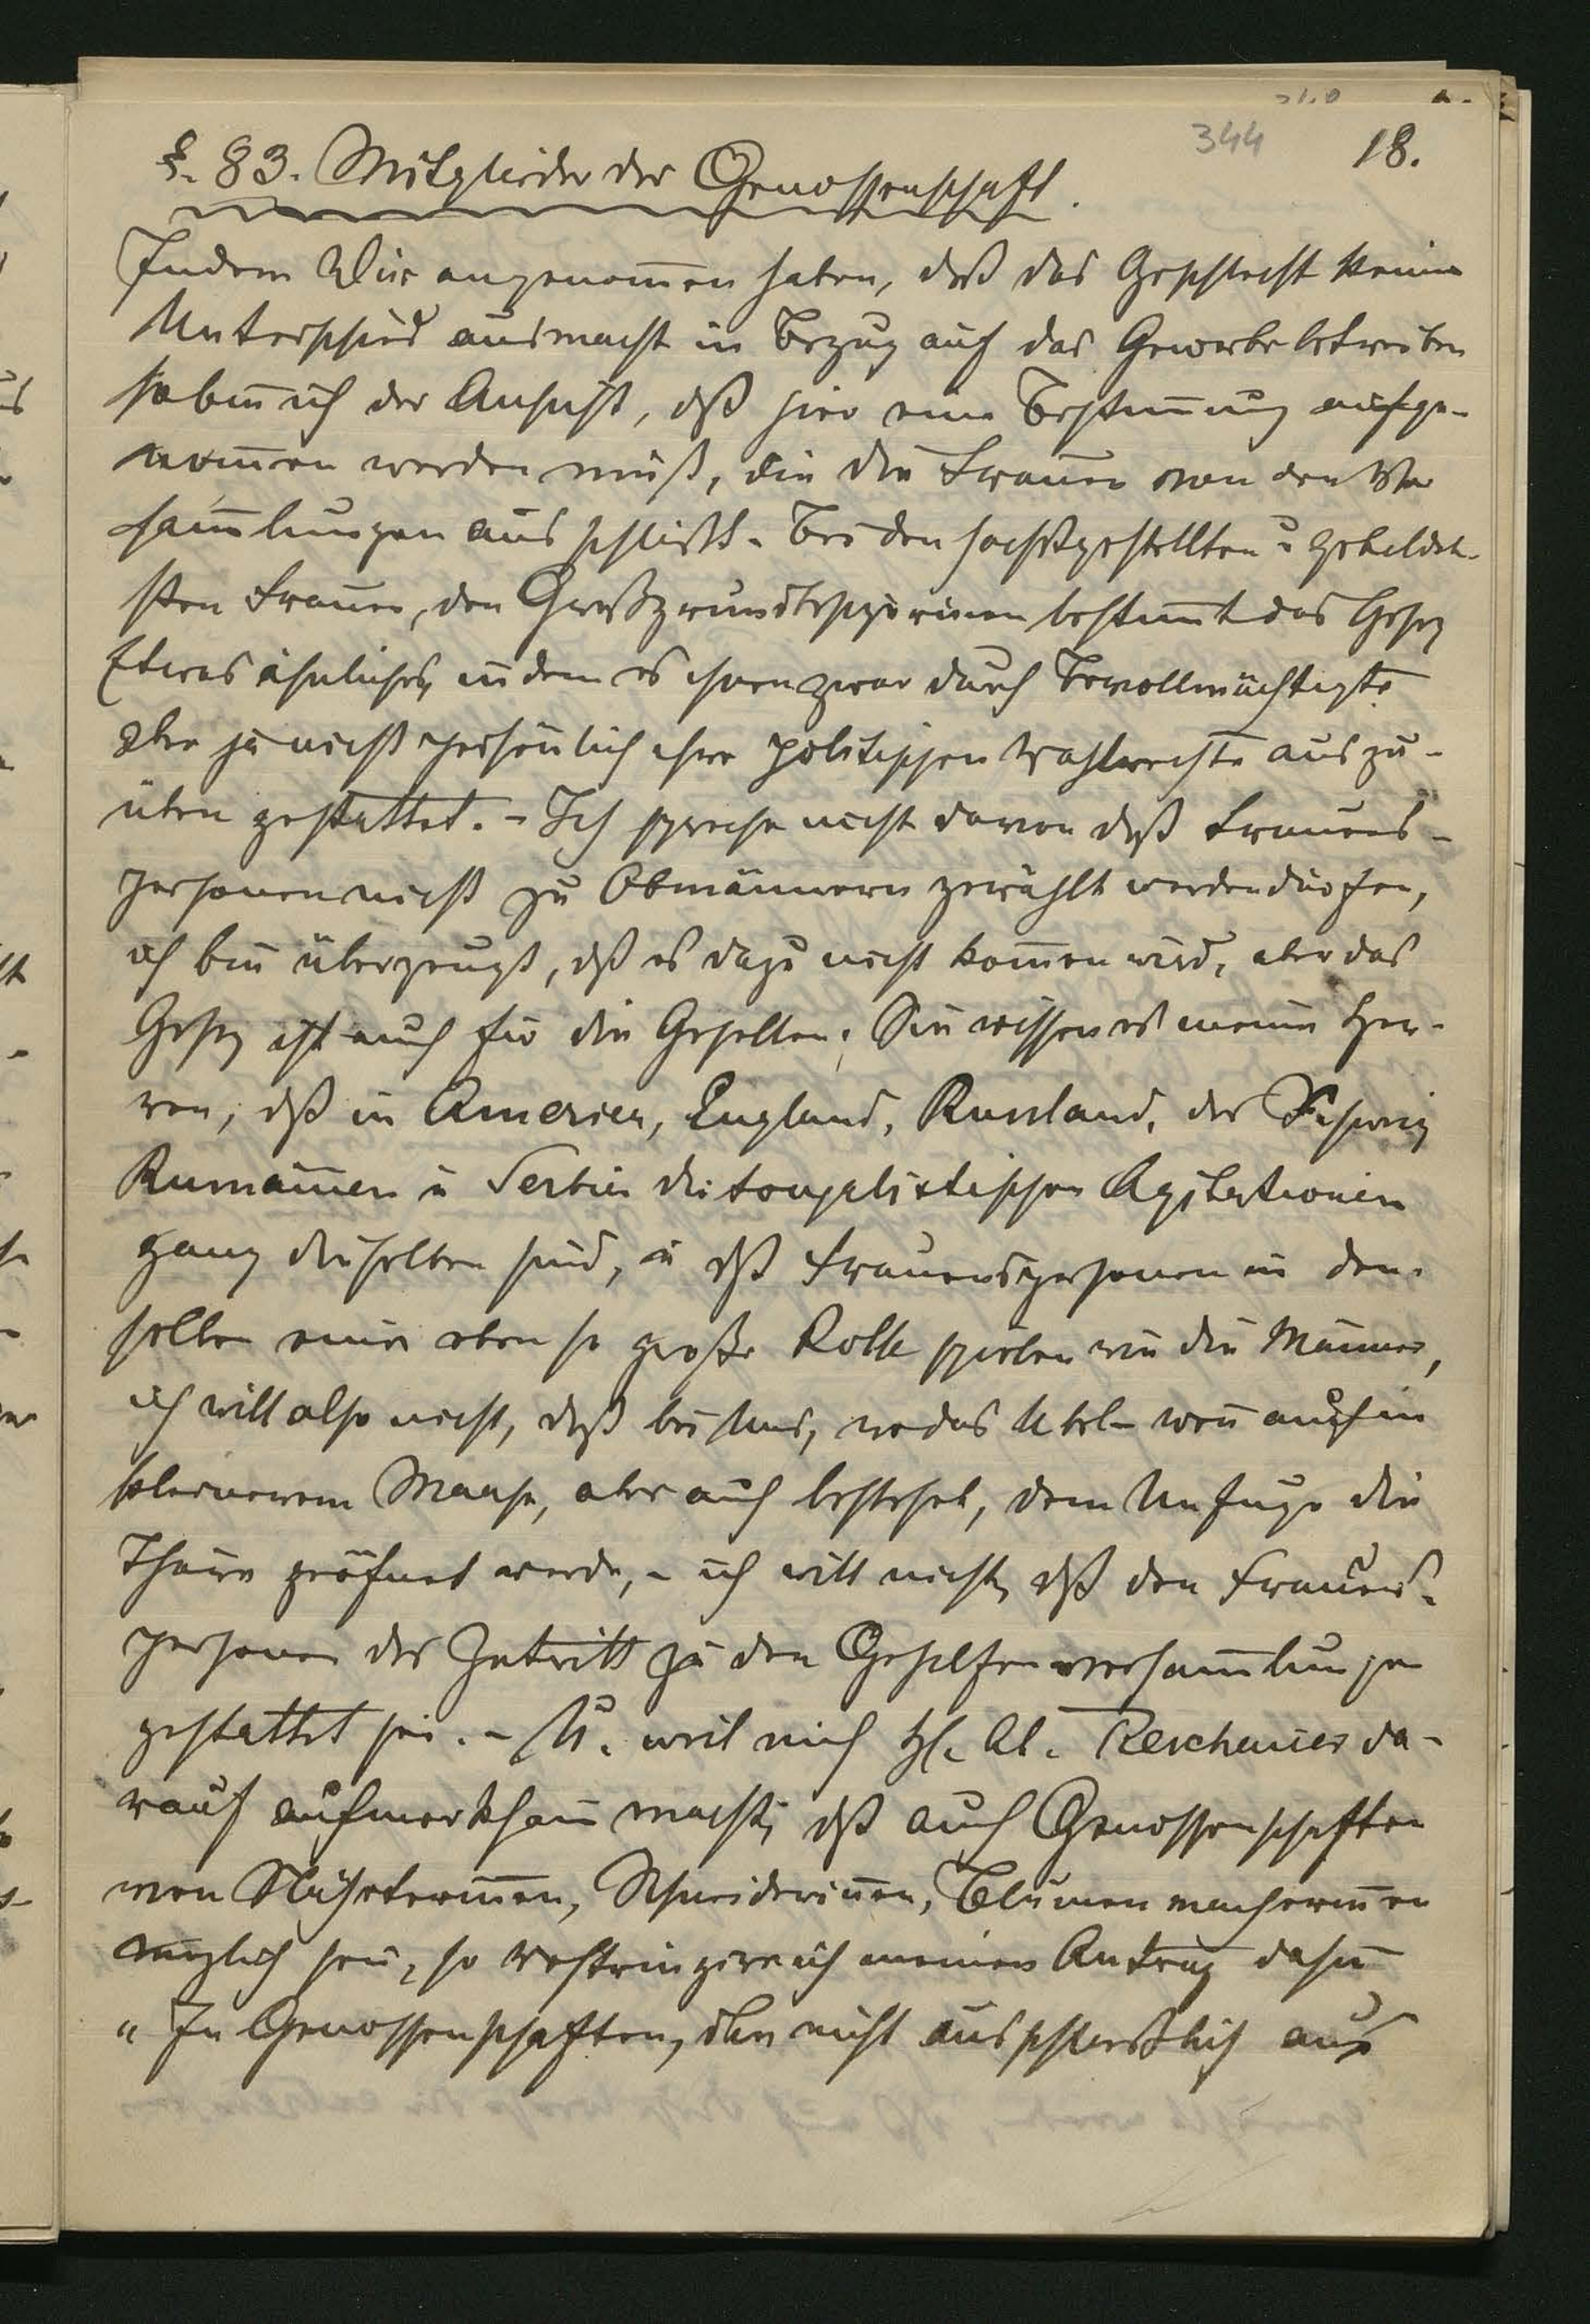 344 18.
§. 83. Mitglieder der Genossenschaft.
Indem Wir angenom̄en haben, daß das Geschlecht keinen
Unterschied ausmacht in Bezug auf das Gewerbebetreiben
so bin ich der Ansicht, dß hier eine Bestim̄ung aufge-
nom̄en werden muß, die die Frauen von den Ver
sam̄lungen ausschließt. Bei den hochstgestellten u gebildet-
sten Frauen, den Großgrundbesizerinen bestim̄t das Gesez
Etwas ähnliches, indem es ihnen zwar durch Bevollmächtigte
aber ja nicht persönlich ihre politischen Wahlrechte auszu-
üben gestattet. - Ich spreche nicht davon daß Frauens-
personen nicht zu Obmännern gewählt werden dürfen,
ich bin überzeugt, dß es dazu nicht kom̄en wird, aber das
Gesez ist auch für die Gesellen. Sie wissen es meine Her-
ren, dß in America, England, Russland, der Schweiz
Rumänien u Serbien die sozialistischen Agitationen
ganz dieselben sind, u dß Frauenspersonen in den-
selben eine eben so große Rolle spielen wie die Männer,
ich will also nicht, daß bei Uns, wo das Übel - wen̄ auch in
kleinerem Maase, aber auch besteht, dem Unfuge die
Thüre geöfnet werde, - ich will nicht, dß den Frauens-
personen der Zutritt zu den Gehilfenversam̄lungen
gestattet sei. - U. weil mich H. Ab. Reschauer da-
rauf aufmerksam macht, dß auch Genossenschaften
von Näherterin̄en, Schneiderin̄en, Blumenmacherin̄en
möglich sein, so restringire ich meinen Antrag dahin
" In Genossenschaften, die nicht ausschließlich aus